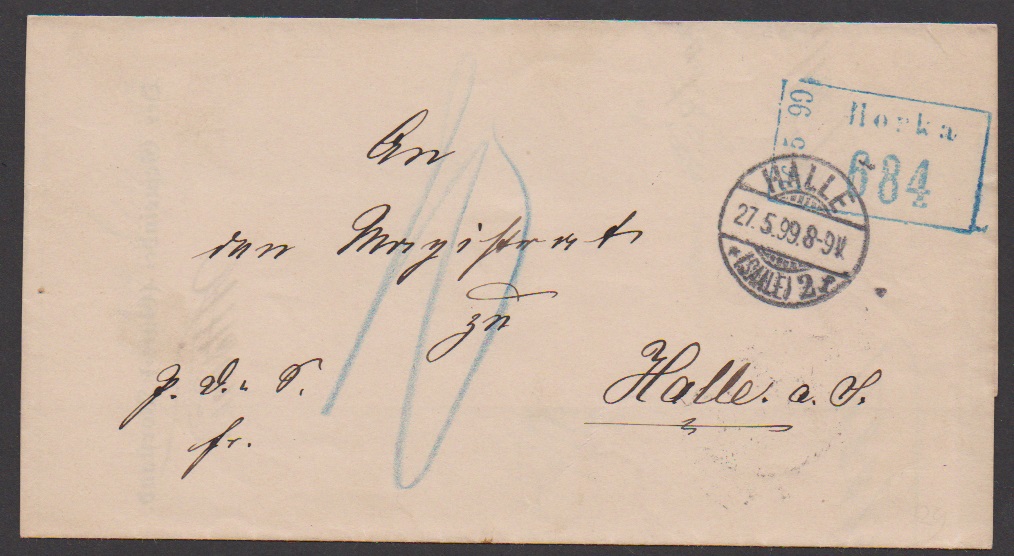 Horka
684
5 99
HALLE
27.5.99.8-9V.
(SAALE) 2
10
An
den Magistrat
zu
Halle. a. S.
p. d. S.
fr.